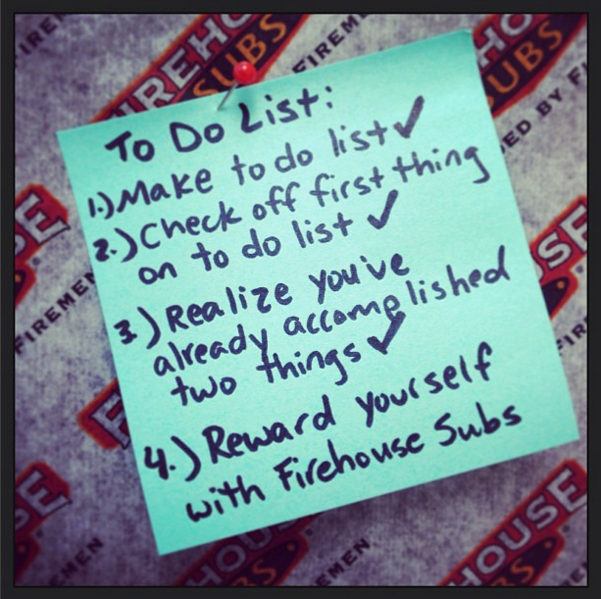 FIREHOUSE
SUBS
FIREMEN
To Do List:
1.) Make to do list ✓
2.) Check off first thing
on to do list ✓
3.) Realize you've
already accomplished
two things ✓
4.) Reward yourself
with Firehouse Subs
SUBS
ED BY FI
FIREMEN
HOUSE
SUBS
EMEN
HOUSE